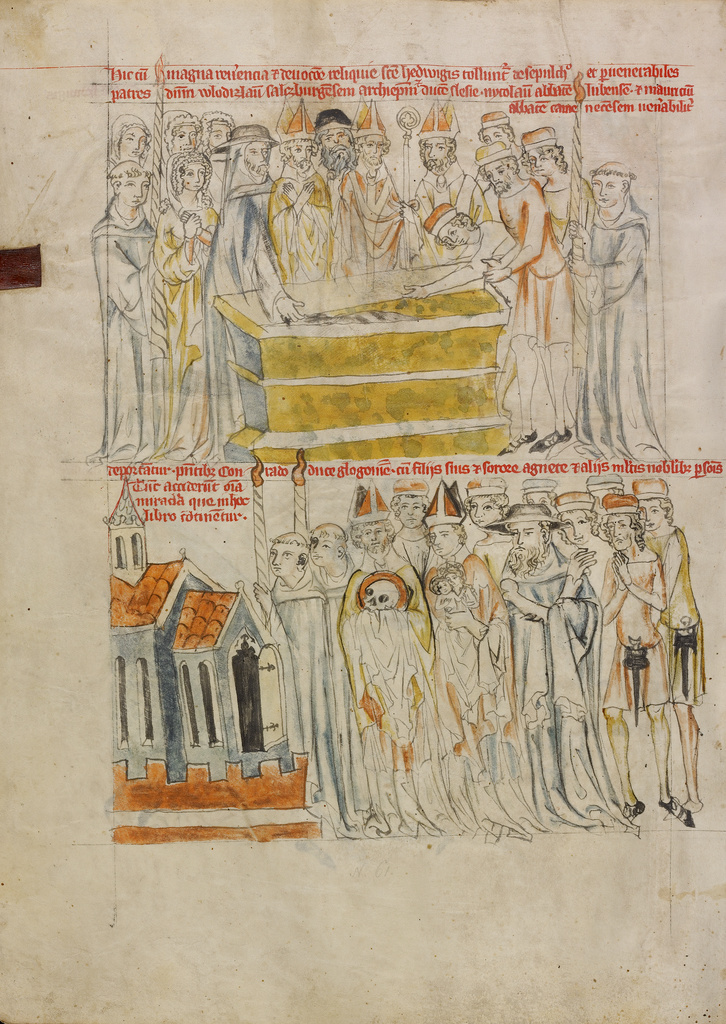 Hic cū magna reuerencia ⁊ deuocōe reliquie scē hedwigis tolluntʳ de sepulchᵒ et p uenerabiles
patres dnm̄ wlodizlaū salczburgēsem archiepm̄ ducē slesie · nycolaū abbatē lubensē · ⁊ mauriciū
abbatē camenecēsem uen̄abilitʳ
reportātur · pn̄tibꝫ Conrado duce glogouiē · cū filijs suis ⁊ sorore agnete ⁊ alijs mltis nobilibꝫ psōis
Tūc acciderūt oīa
miracla que in hoc
libro cōtinētur ·